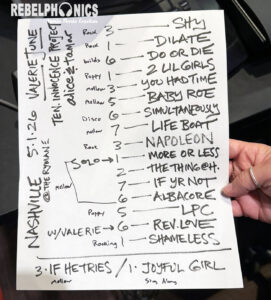 REBELPHONICS
NASHVILLE 5.1.26 VALERIE JUNE
@THE RYMAN
TEN. INNOCENCE PROJECT
alice & tamar
Rock 3 SHY
Rock 1 DILATE
builds 6 DO OR DIE
Poppy 1 2 LIL GIRLS
mellow 3 YOU HAD TIME
Mellow 5 BABY ROE
Disco 6 SIMULTANEOUSLY
mellow 7 LIFE BOAT
Rock 3 NAPOLEON
SOLO 1 MORE OR LESS
2 THE THING @H.
mellow 7 IF YR NOT
6 ALBACORE
Poppy 5 LPC
W/VALERIE 6 REV. LOVE
Rocking 1 SHAMELESS
3. IF HE TRIES / 1. JOYFUL GIRL
mellow Sing Along